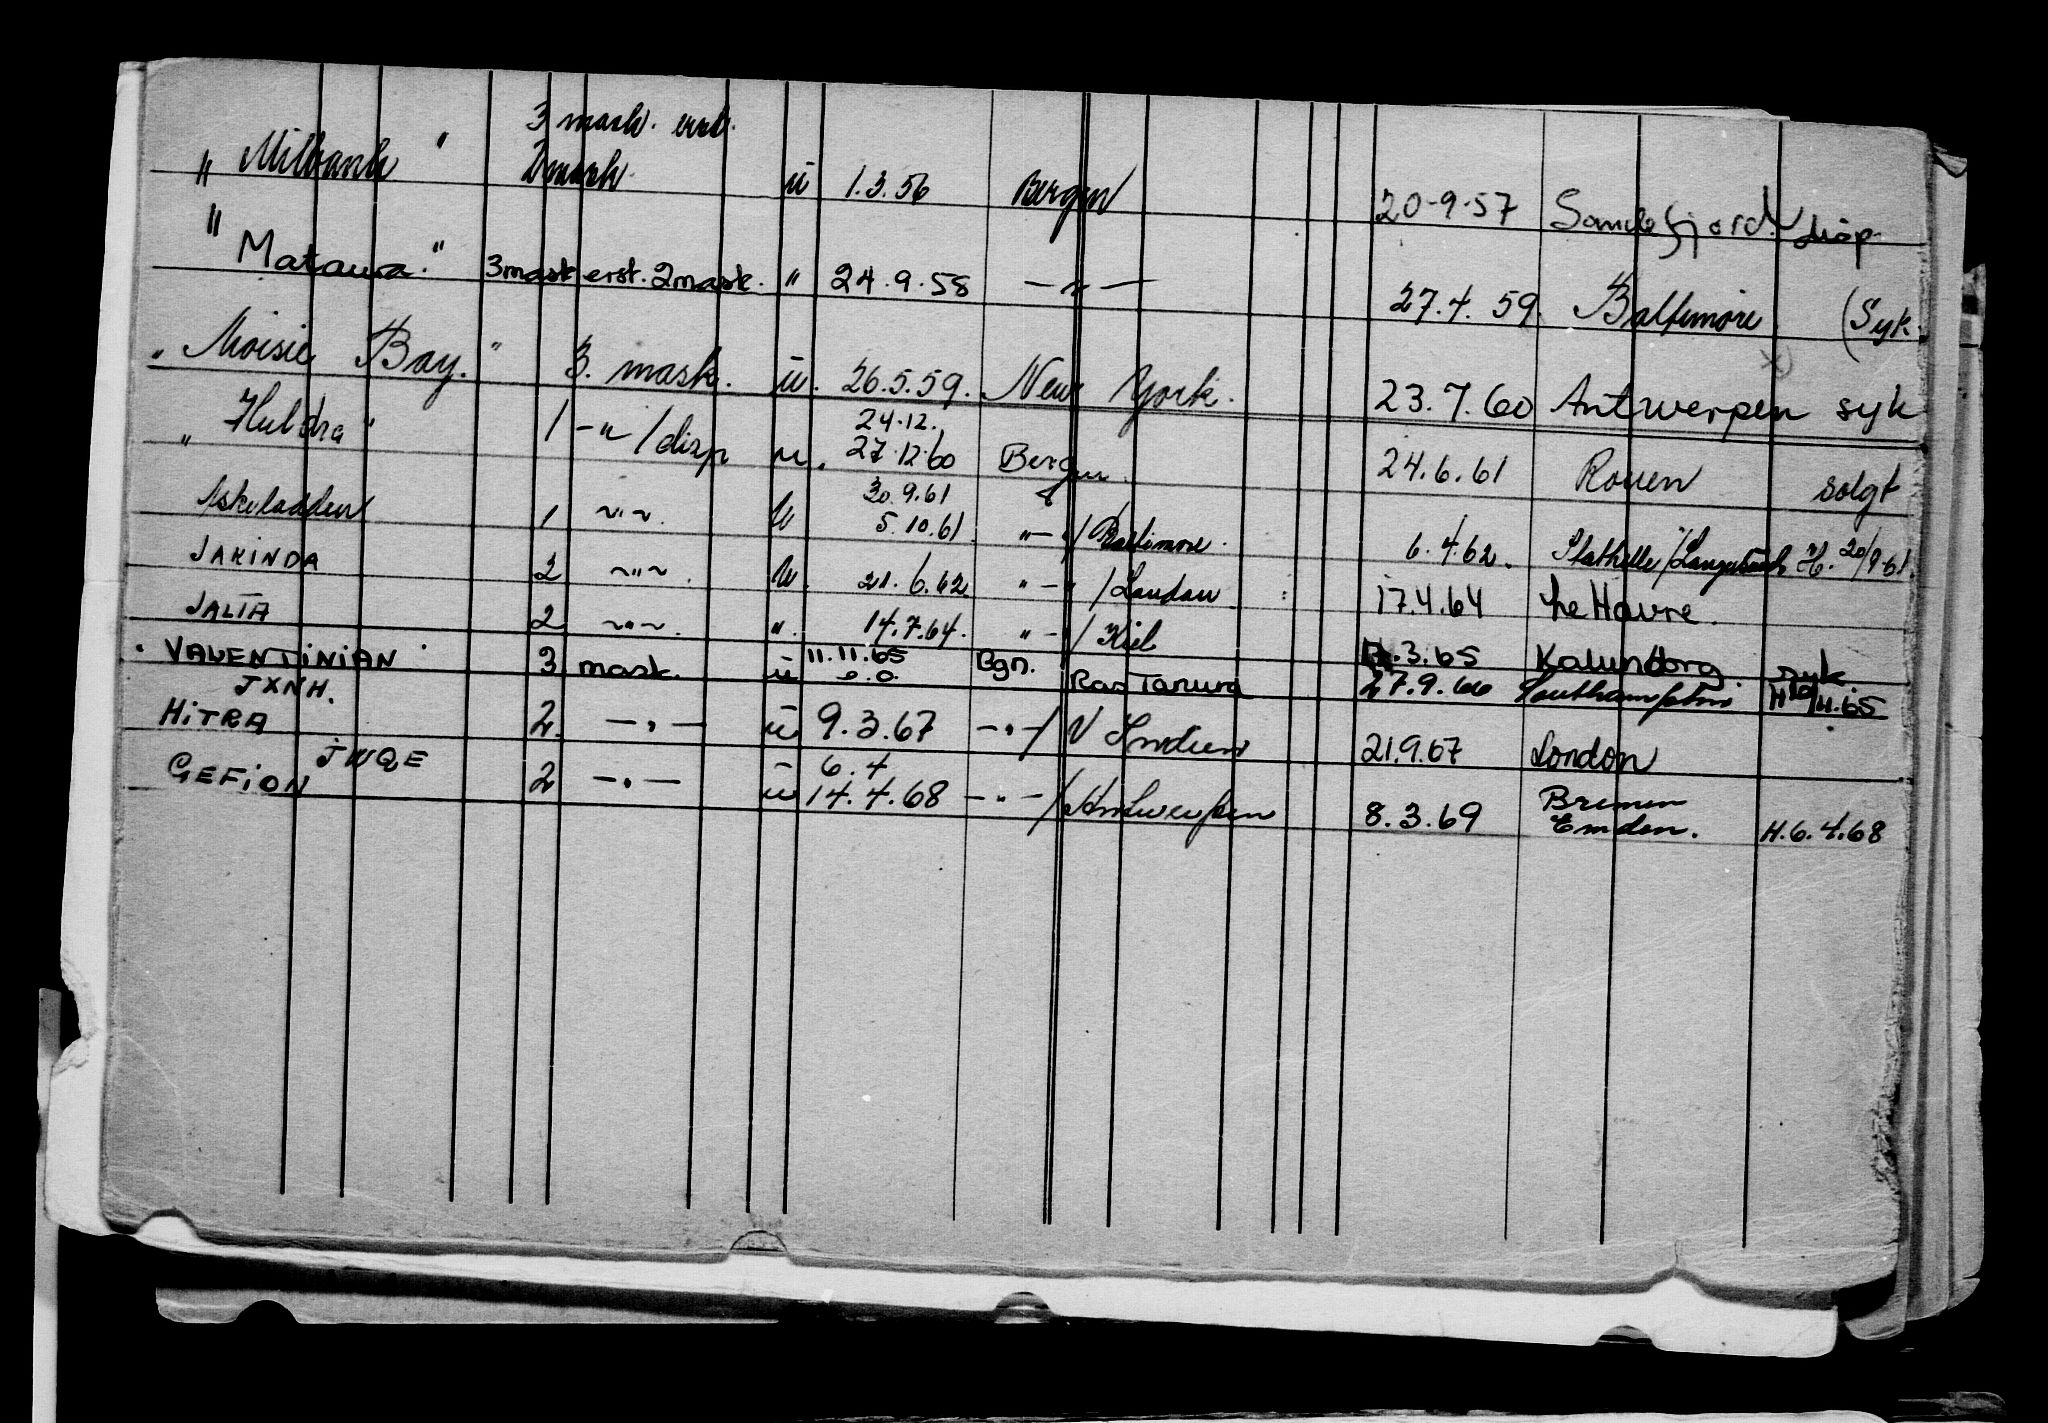 3 mask. erst.
" Milbank " 2 mask. u 1.3.56 Bergen 20-9-57 Sandefjord. disp.
" Mataura." 3 mask erst. 2 mask. " 24.9.58 — " — 27.4.59. Baltimore (Syk.
" Moisie Bay." 3. mask. u. 26.5.59. New York. 23.7.60 Antwerpen syk
24.12.
" Huldra " 1 -"- / disp u. 27.12.60 Bergen. 24.6.61 Rouen solgt
30.9.61
Askeladden 1 ~"~. u 5.10.61. "-"/ Baltimore. 6.4.62. Stathelle/Langesund H. 20/9-61.
JARINDA 2 ~"~. u. 21.6.62 "-"/London 17.4.64 Le Havre.
JALTA 2 ~"~. ". 14.7.64. "-"/ Kiel .3.65 Kalundborg. syk
" VALENTINIAN " 3 mask. u 11.11.65 Bgn. Ras Tanura 27.9.66 Southampton H /11.65
o.o.
JXNH.
HITRA 2. — " — u 9.3.67 -"-/ V Indien 21.9.67 London
JWQE 6.4
GEFION 2 — " — u 14.4.68 — " —/Antwerpen 8.3.69 Bremen
Emden. H.6.4.68